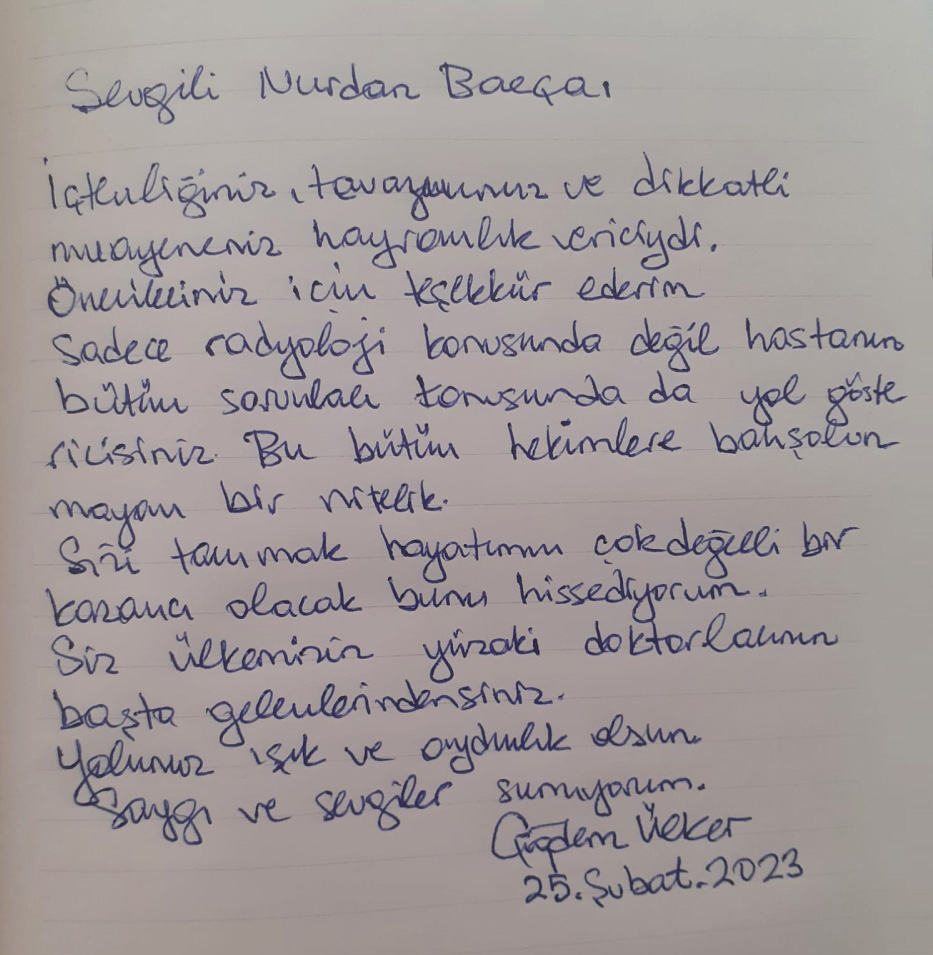 Sevgili Nurdan Barça,
İçtenliğiniz, tavazunuz ve dikkatli
muayeneniz hayranlık vericiydi.
Önerileriniz için teşekkür ederim
Sadece radyoloji konusunda değil hastanın
bütün sorunları konusunda da yol göste
ricisiniz. Bu bütün hekimlere bahşolun
mayan bir nitelik.
Sizi tanımak hayatımın çok değerli bir
kazancı olacak bunu hissediyorum.
Siz ülkemizin yüzakı doktorlarının
başta gelenlerindensiniz.
Yolunuz ışık ve aydınlık olsun.
Saygı ve sevgiler sunuyorum.
Çiğdem Ülker
25.Şubat.2023